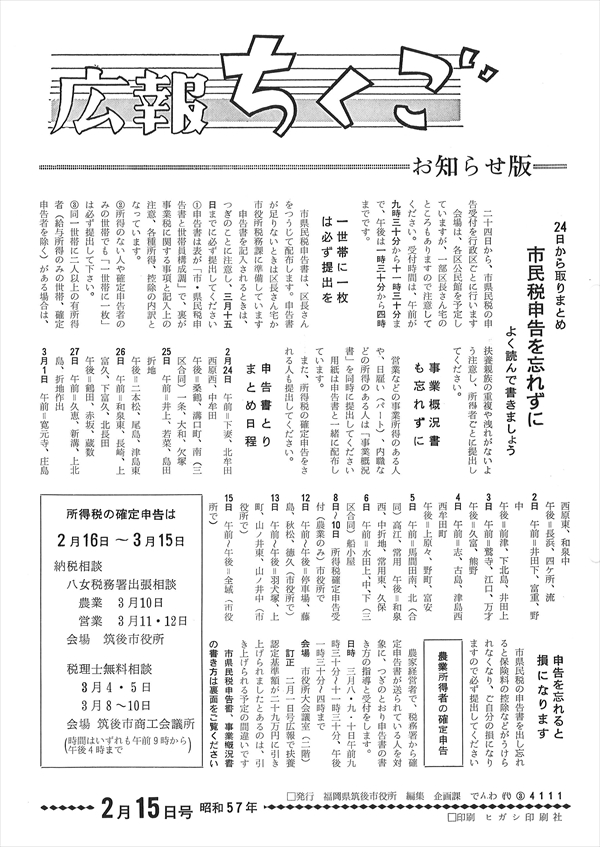 広報ちくご
お知らせ版
24日から取りまとめ
市民税申告を忘れずに
よく読んで書きましょう
二十四日から、市県民税の申
告受付を行政区ごとに行います
会場は、各区公民館を予定し
ていますが、一部区長さん宅の
ところもありますので注意して
ください。受付時間は、午前が
九時三十分から十一時三十分ま
で、午後は一時三十分から四時
までです。
一世帯に一枚
は必ず提出を
市県民税申告書は、区長さん
をつうじて配布します。申告書
が足りないときは区長さん宅か
市役所税務課に準備しています
申告書を記入されるときは、
つぎのことに注意し、三月十五
日までに必ず提出してください
①申告書は表が「市・県民税申
告書と世帯員構成調」で、裏が
事業税に関する事項と記入上の
注意、各種所得、控除の内訳と
なっています。
②所得のない人や確定申告者の
みの世帯でも「一世帯に一枚」
は必ず提出して下さい。
③同一世帯に二人以上の有所得
者(給与所得のみの世帯、確定
申告者を除く)がある場合は、
扶養親族の重複や洩れがないよ
う注意し、所得者ごとに提出し
てください。
事業概況書
も忘れずに
営業などの事業所得のある人
や、日雇い(パート)、内職な
どの所得のある人は「事業概況
書」を同時に提出してください
用紙は申告書と一緒に配布し
ています。
また、所得税の確定申告をさ
れる人も提出してください。
申告書とり
まとめ日程
2月24日 午前=下妻、北牟田
西原西、中牟田
午後=桑鶴、溝口町、南(三
区合同)一条、大和、欠塚
25日 午前=井上、若菜、島田
折地
午後=二本松、尾島、津島東
26日 午前=和泉東、長崎、上
富久、下富久、北長田
午後=鶴田、赤坂、蔵数
27日 午前=久恵、新溝、上北
島、折地作出
3月1日 午前=寛元寺、庄島
西原東、和泉中
午後=長浜、四ケ所、流
2日 午前=井田下、富重、野
中
午後=前津、下北島、井田上
3日 午前=鷲寺、江口、万才
午後=久富、熊野
4日 午前=志、古島、津島西
西牟田町
午後=上原々、野町、富安
5日 午前=馬間田南、北(合
同)高江、常用 午後=和泉
西、中折地、常用東、久保
6日 午前=水田上、中、下(三
区合同)船小屋
8日~10日 所得税確定申告受
付(農業のみ)市役所で
12日 午前~午後=停車場、藤
島、秋松、徳久(市役所で)
13日 午前~午後=羽犬塚、上
町、山ノ井東、山ノ井中(市
役所で)
15日 午前~午後=全域(市役
所で)
申告を忘れると
損になります
市県民税の申告書を出し忘れ
ると保険料の控除などがうけら
れなくなり、ご自分の損になり
ますので必ず提出してください
農業所得者の確定申告
農家経営者で、税務署から確
定申告書が送られている人を対
象に、つぎのとおり申告書の書
き方の指導と受付をします。
日時 三月八・九・十日午前九
時三十分~十一時三十分、午後
一時三十分~四時まで
会場 市役所大会議室(二階)
訂正 二月一日号広報で扶養
認定基準額が二十九万円に引き
上げられましたとあるのは、引
き上げられる予定の間違いです
市県民税申告書、事業概況書
の書き方は裏面をご覧ください
所得税の確定申告は
2月16日~3月15日
納税相談
八女税務署出張相談
農業 3月10日
営業 3月11・12日
会場 筑後市役所
税理士無料相談
3月4・5日
3月8~10日
会場 筑後市商工会議所
(時間はいずれも午前9時から
午後4時まで)
2月15日号 昭和57年
□発行 福岡県筑後市役所 編集 企画課 でんわ㈹③4111
□印刷 ヒガシ印刷社